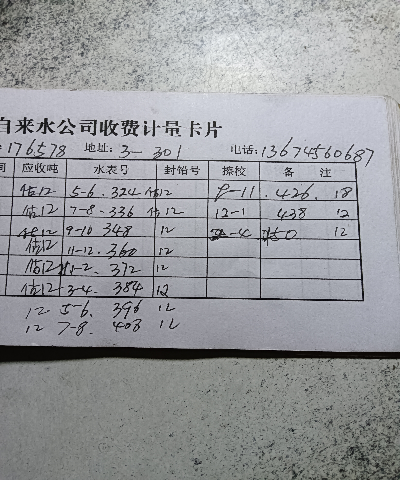 自来水公司收费计量卡片
176578 地址: 3-301 电话: 13674560687
间 应收吨 水表号 封铅号 擦校 备 注
估12 5-6. 324 估12 9-11. 426. 18
估12 7-8. 336 估12 12-1 438 12
估12 9-10 348 12 -4 450 12
估12 11-12. 360 12
估12 1-2. 372 12
估12 3-4. 384 12
12 5-6. 396 12
12 7-8. 408 12